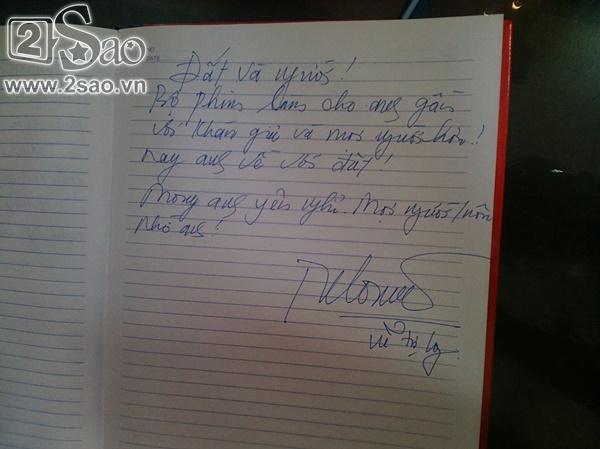 2Sao
www.2sao.vn
DATE
Đất và người!
Bộ phim làm cho anh gần
với khán giả và mọi người hơn!
Nay anh về với đất!
Mong anh yên nghỉ. Mọi người luôn
nhớ anh!